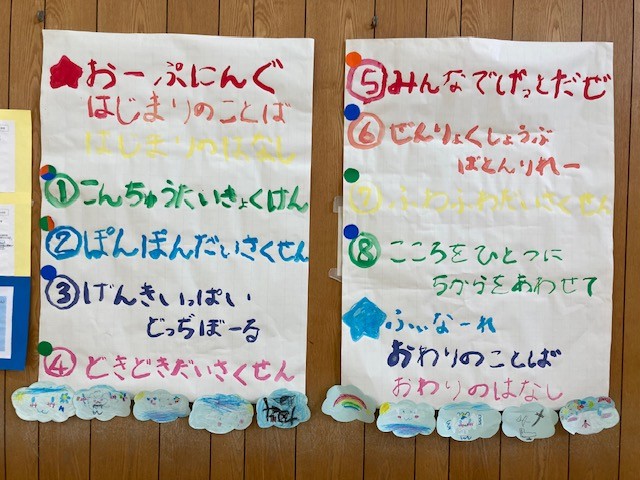 おーぷにんぐ
はじまりのことば
はじまりのはなし
① こんちゅうたいきょくけん
② ぽんぽんだいさくせん
③ げんきいっぱい
どっぢぼーる
④ どきどきだいさくせん
⑤ みんなでげっとだぜ
⑥ ぜんりょくしょうぶ
ばとんりれー
⑦ ふわふわだいさくせん
⑧ こころをひとつに
ちからをあわせて
ふぃなーれ
おわりのことば
おわりのはなし